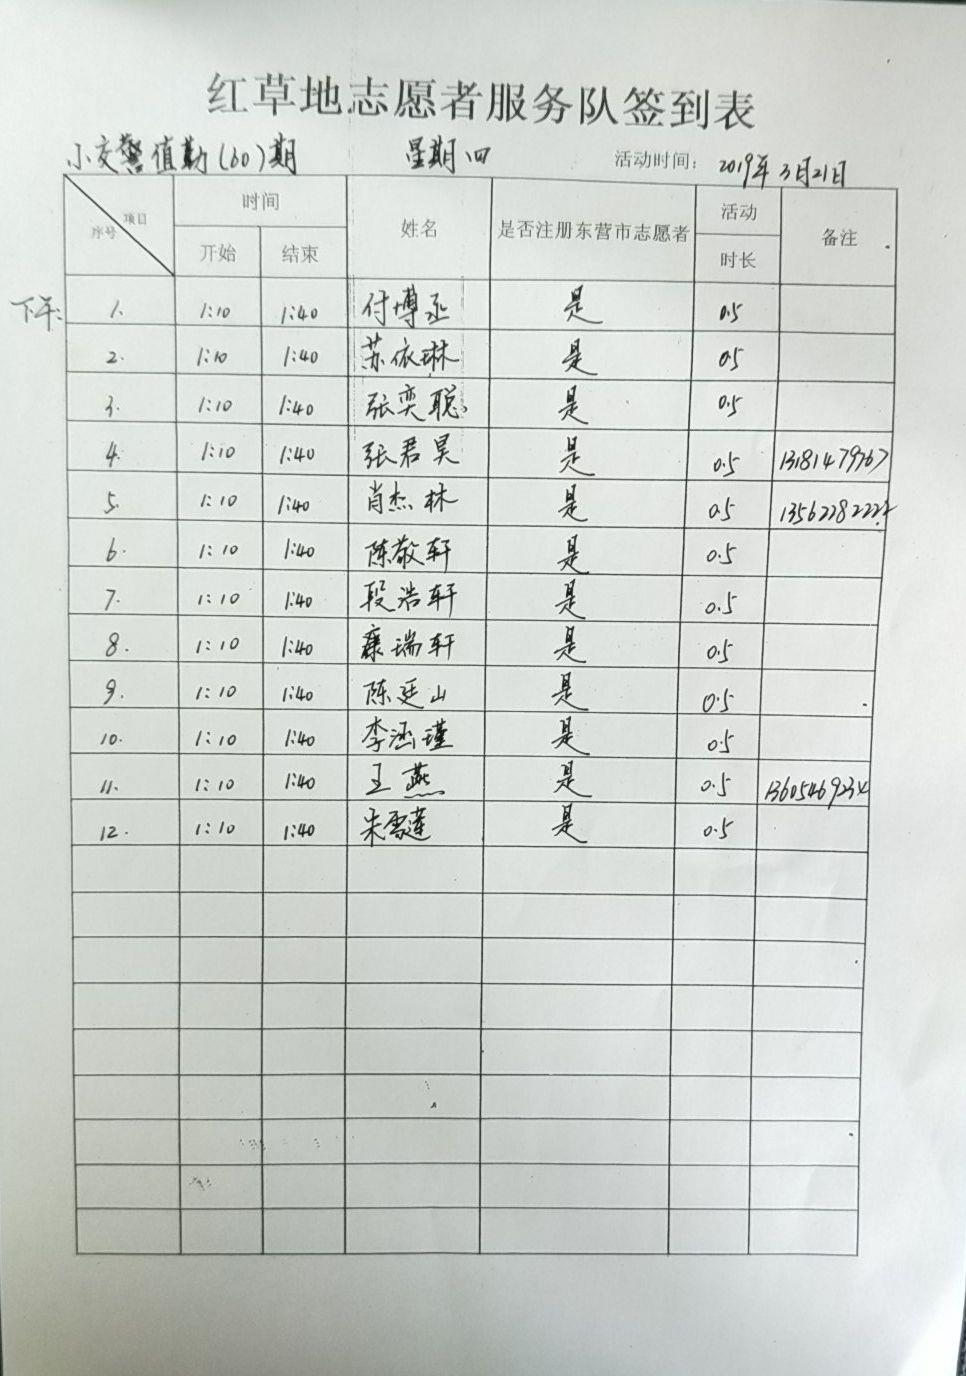 红草地志愿者服务队签到表
小交警值勤(60)期 星期四 活动时间: 2019年3月21日
项目 序号 时间 姓名 是否注册东营市志愿者 活动 备注
开始 结束 时长
下午: 1. 1:10 1:40 付博丞 是 0.5
2. 1:10 1:40 苏依琳 是 0.5
3. 1:10 1:40 张奕聪 是 0.5
4. 1:10 1:40 张君昊 是 0.5 13181479767
5. 1:10 1:40 肖杰林 是 0.5
6. 1:10 1:40 陈敬轩 是 0.5
7. 1:10 1:40 段浩轩 是 0.5
8. 1:10 1:40 康瑞轩 是 0.5
9. 1:10 1:40 陈廷山 是 0.5
10. 1:10 1:40 李涵瑾 是 0.5
11. 1:10 1:40 王燕 是 0.5 13605469234
12. 1:10 1:40 朱雪莲 是 0.5